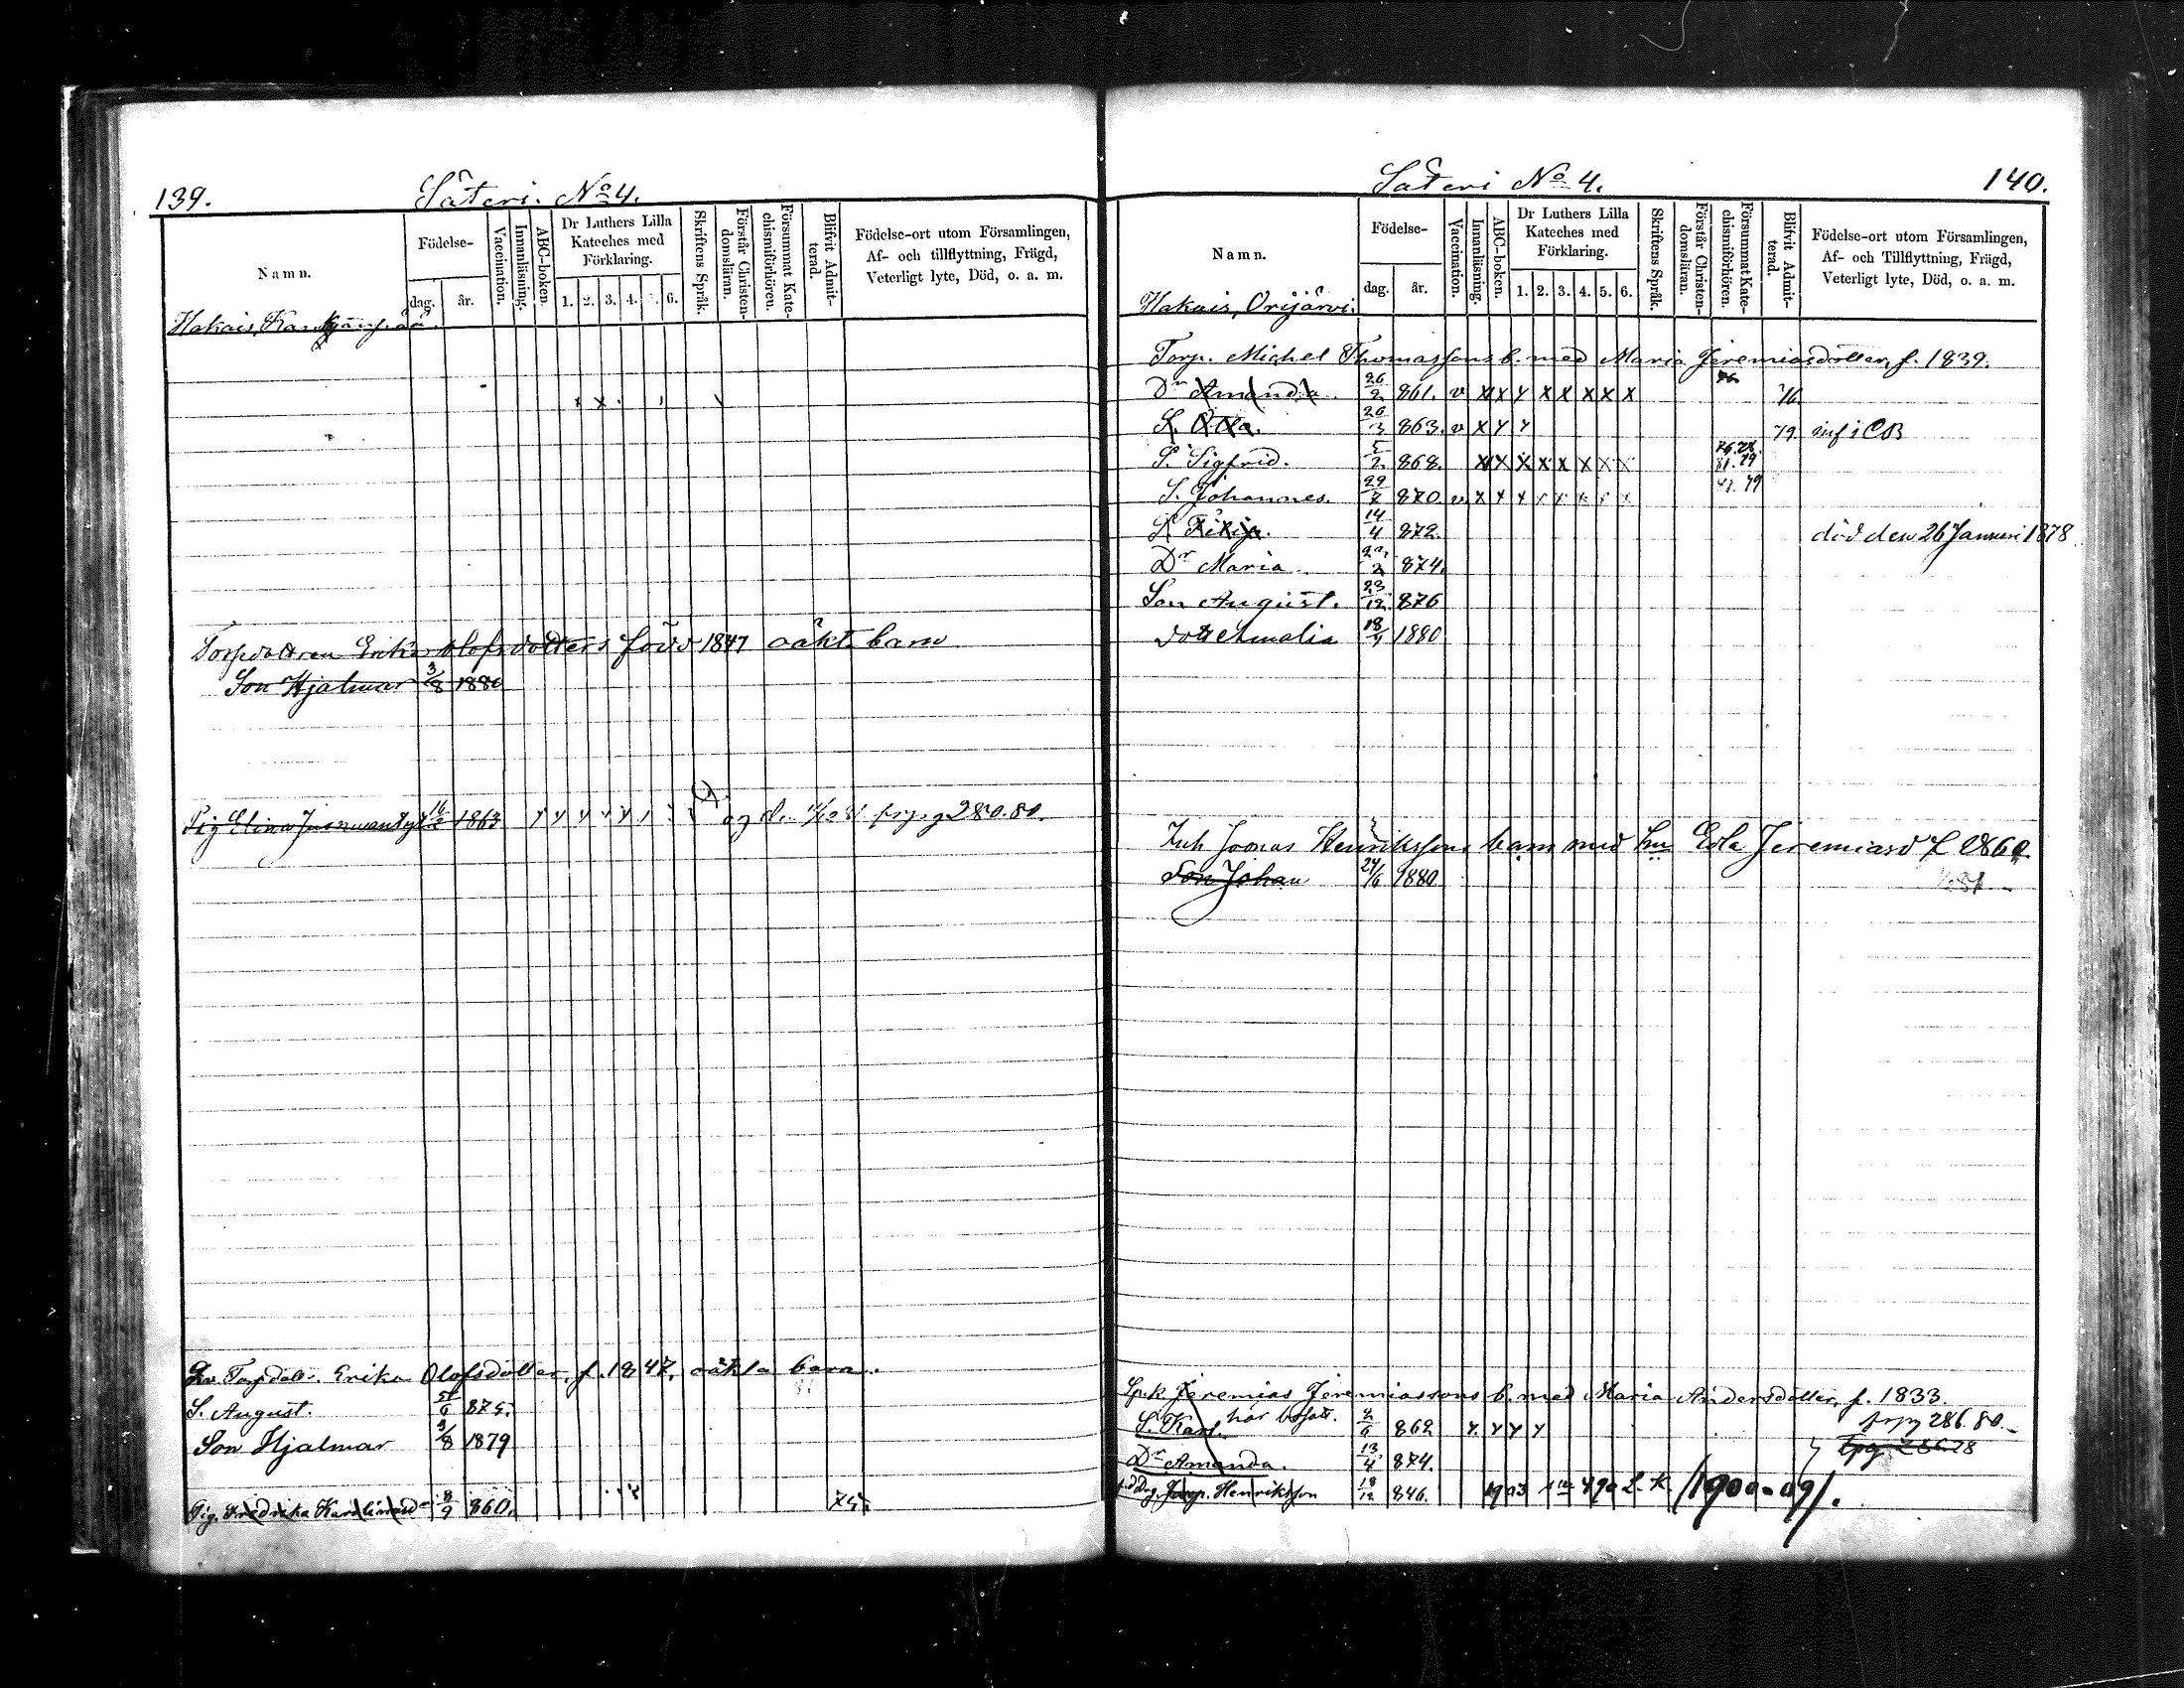 139.
Säteri. No 4.
Namn.
Födelse-
dag.
år.
Vaccination.
Innanläsning.
ABC-boken.
Dr Luthers Lilla
Kateches med
Förklaring.
1. 2. 3. 4. 6.
Skriftens Språk.
Förstår Christen-
domsläran.
Försummat Kate-
chismiförhören.
Blifvit Admit-
terad.
Födelse-ort utom Församlingen,
Af- och tillflyttning, Frägd,
Veterligt lyte, Död, o. a. m.
Hakais,
Torpdottren Erika Olofsdotters född 1847 oäkt. barn
Son Hjalmar 3/8 1880
Pig Elina 16/2 1863 280.80.
Torpdott. Erika Olofsdotter, f. 1847, oäkta barn.
S. August. 5/6 875.
Son Hjalmar 3/8 1879
Pig. Fredrika 8/9 860.
Säteri No 4.
140.
Namn.
Födelse-
dag.
år.
Vaccination.
Innanläsning.
ABC-boken.
Dr Luthers Lilla
Kateches med
Förklaring.
1. 2. 3. 4. 5. 6.
Skriftens Språk.
Förstår Christen-
domsläran.
Försummat Kate-
chismiförhören.
Blifvit Admit-
terad.
Födelse-ort utom Församlingen,
Af- och Tillflyttning, Frägd,
Veterligt lyte, Död, o. a. m.
Hakais, Orijärvi.
Torp. Michel Thomassons b. med Maria Jeremiasdotter, f. 1839.
Dr Amanda 26/2 861. v x x y x x x x x 76.
S. 26/3 863. v x y y 79. inf i CB
S. Sigfrid. 5/2 868. x x x x x x x x 81. 79
S. Johannes. 29/7 870 v. x x x x x x x x
14/4 872. död den 26 Januari 1878
Dr Maria 874.
Son August. 23/12 876
dott Amalia 18/4 1880
Inh Joonas Henrikssons barn med hu Eda Jeremiasd f. 1860
Son Johan 24/6 1880
Spk Jeremias Jeremiassons b. med Maria Andersdotter, f. 1833.
S. Karl. har bosatt. 2/6 862 y. y y y 286.80.
Dr Amanda. 13/4 874.
Henriksson 18/12 846. 1903 490 L. K. /1900-09/.